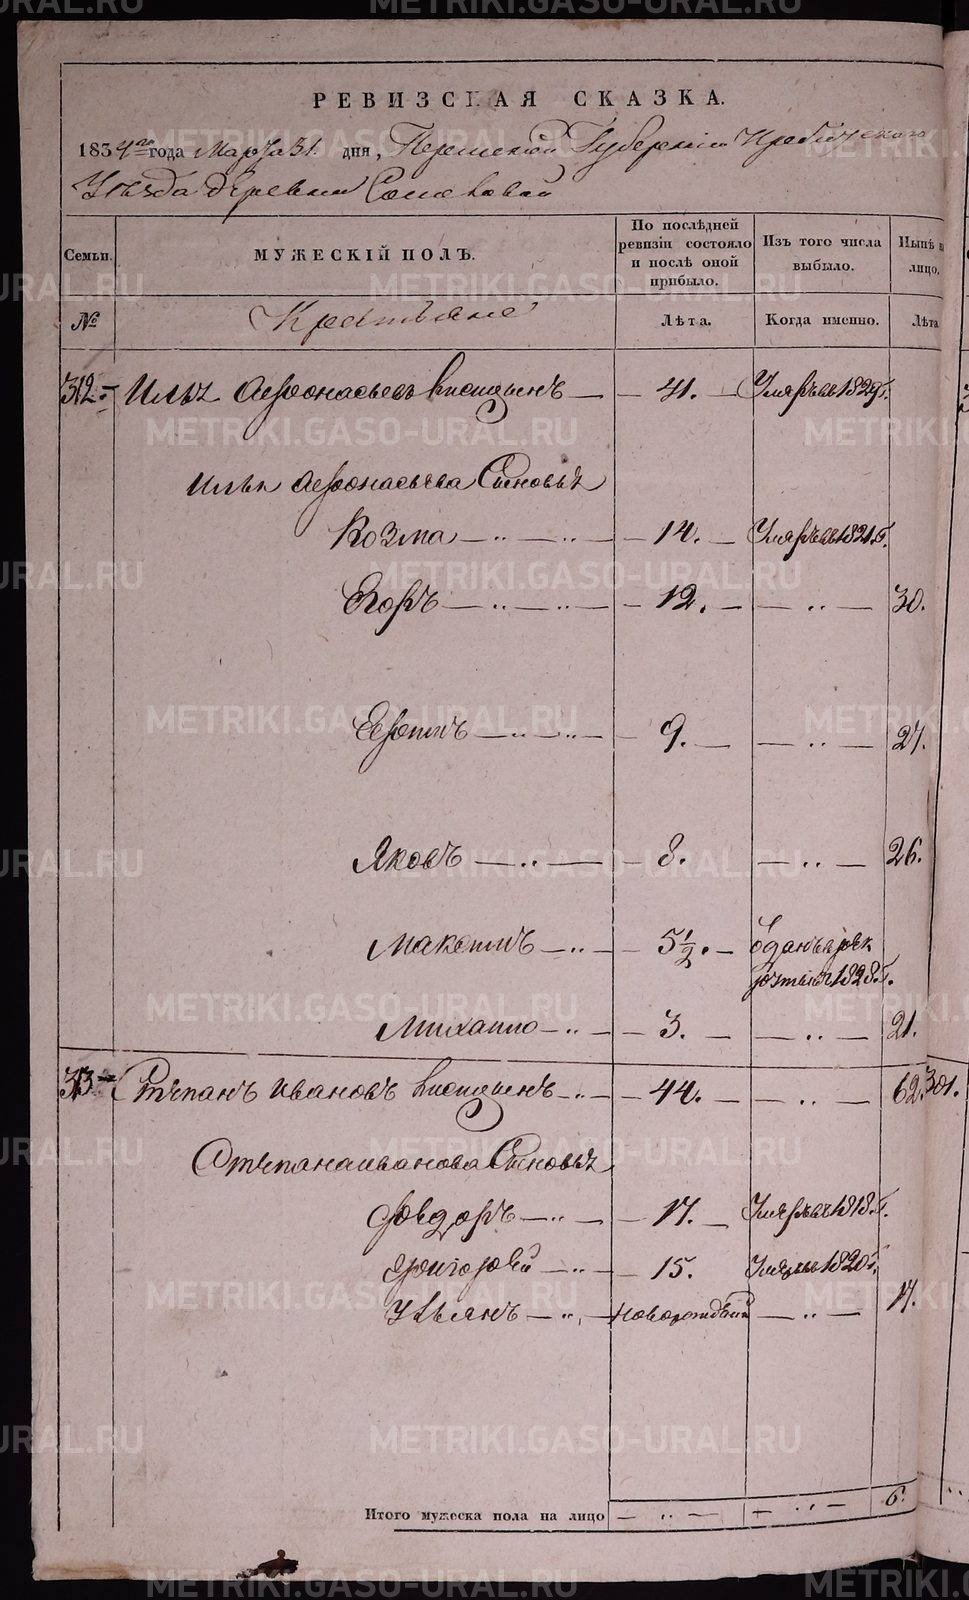 РЕВИЗСКАЯ СКАЗКА.
1834го года Марта 31. дня, Пермской Губернии Ирбитскаго
Уѣзда деревни
Семьи. МУЖЕСКІЙ ПОЛЪ. По послѣдней ревизіи состояло и послѣ оной прибыло. Изъ того числа выбыло. Нынѣ на лицо.
№ Крестьяне Лѣта. Когда именно. Лѣта
312. Илья Афонасьевъ 41. Умеръ въ 1829г.
Ильи Афонасьева Сыновья
Козма 14. Умеръ въ 1821.г.
Егоръ 12. 30.
Ефимъ 9. 27.
Яковъ 8. 26.
Максимъ 5½. Отданъ въ рек
руты въ 1828.г.
Михаило 3. 21.
313 Степанъ Ивановъ 44. 62. 301.
Степана Иванова Сыновья
Фёдоръ 17. Умеръ въ 1818.г.
Григорей 15. Умеръ въ 1820г.
Ульянъ Новорожденный 17.
Итого мужеска пола на лицо 6.
METRIKI.GASO-URAL.RU